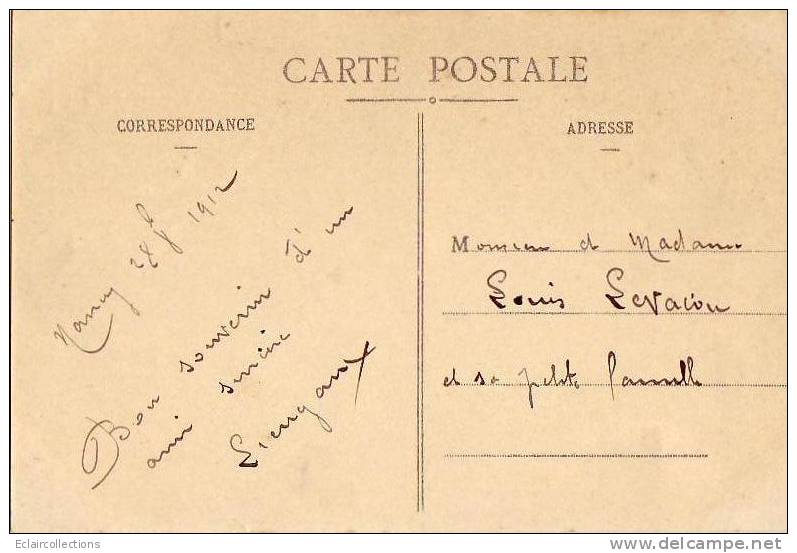 CARTE POSTALE
CORRESPONDANCE
ADRESSE
Nancy 28 1912
Bon souvenir d'un
ami sincère
Monsieur et Madame
Louis Levacou
et sa petite famille
Eclaircollections
delcampe.net